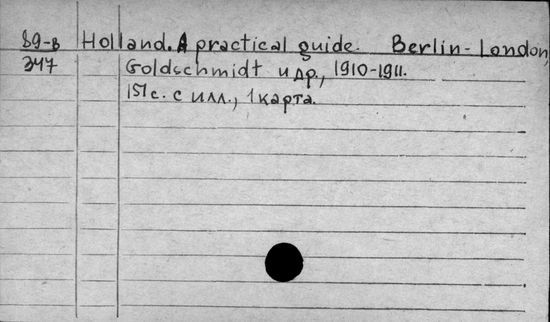 89-в Holland. A practical guide. Berlin-London,
347 Goldschmidt и др., 1910-1911.
151 с. с илл., 1 карта.